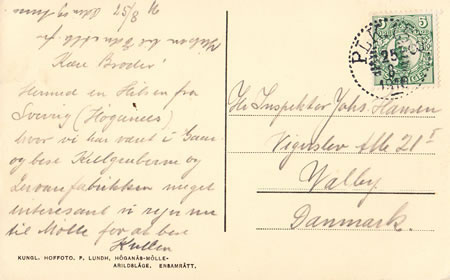 Kære Broder!
Hermed en Hilsen fra
Sverrig (Höganæs)
hvor vi har været i Gaar
og bese Kulgruberne og
Lervarefabrikken meget
interesant vi rejser nu
til Mölle for at bese
Kullen
25/8
PL
25
8
191
5
Hr. Inspektør Johs. Hansen
Vigerslev Alle 21
Walby
Danmark.
KUNGL. HOFFOTO. P. LUNDH, HÖGANÄS-MÖLLE-
ARILDSLÄGE, ENSAMRÄTT.